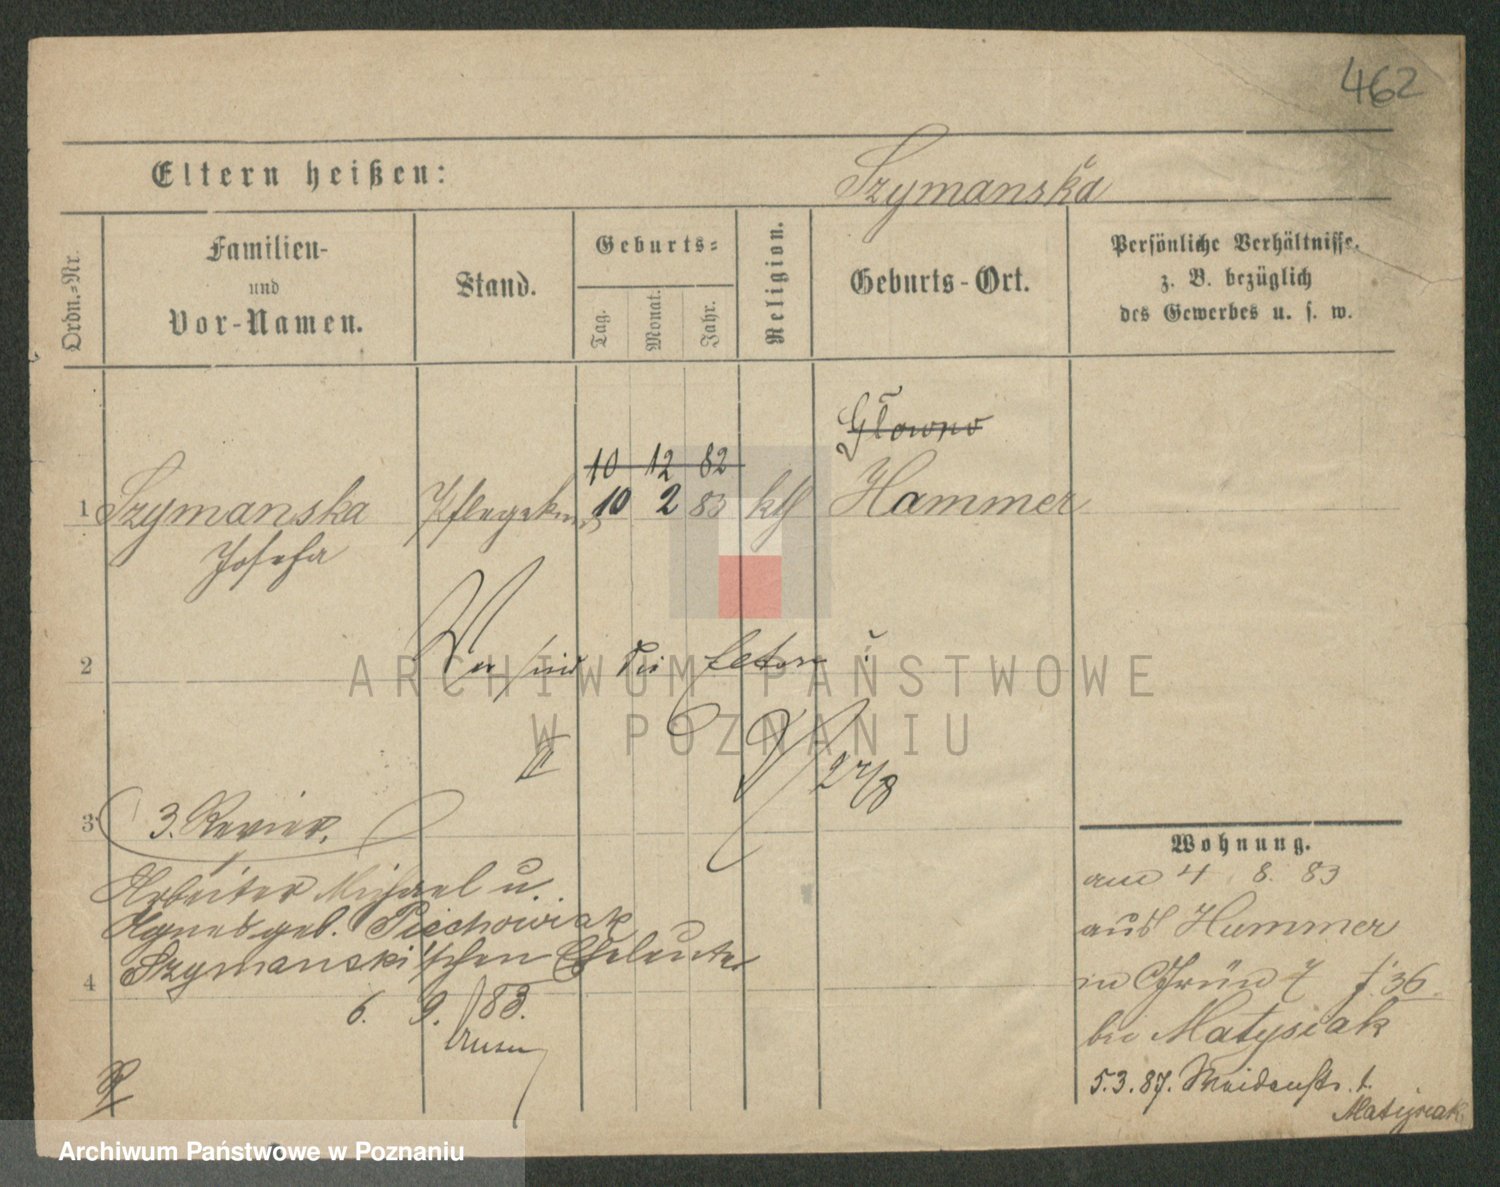 462
Eltern heißen: Szymanska
Ordn.-Nr.
Familien-
und
Vor-Namen.
Stand.
Geburts-
Tag. Monat. Jahr.
Religion.
Geburts-Ort.
Persönliche Verhältnisse.
z. B. bezüglich
des Gewerbes u. s. w.
Głowno
10 12 82
1 Szymanska 10 2 83 kth Hammer
Josefa
2 Wer sind die Eltern?
II
27/8
3 3. Revier.
Arbeiter Michael u.
Agnes geb. Piechowiak
Szymanski'schen Eheleute
4
6. 9. 83.
Wohnung.
am 4. 8. 83
aus Hammer
in Grün
bei Matysiak
5.3.87. Weidenstr. 1.
Matysiak
ARCHIWUM PAŃSTWOWE
W POZNANIU
Archiwum Państwowe w Poznaniu